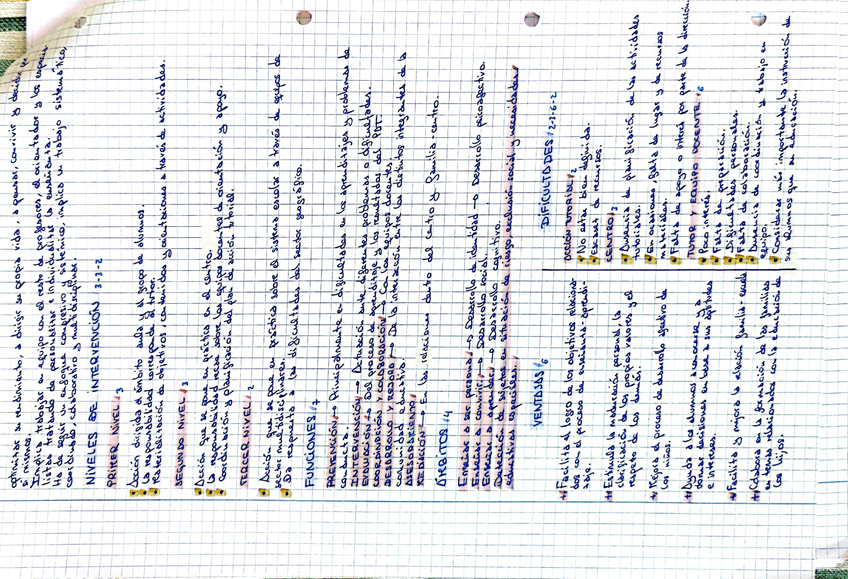 optimizar su rendimiento, a dirigir su propia vida, a pensar, convivir y decidir por
sí mismos.
Implica trabajar en equipo con el resto de profesores, el orientador y los especia-
listas tratando de personalizar e individualizar la enseñanza.
Ha de seguir un enfoque comprensivo y sistémico, implica un trabajo sistemático,
coordinado, colaborativo y multidisciplinar.
NIVELES DE INTERVENCIÓN 3-3-2
PRIMER NIVEL / 3
Acción dirigida al ámbito aula y al grupo de alumnos.
La responsabilidad corresponde al tutor.
Materialización de objetivos, contenidos y orientaciones a través de actividades.
SEGUNDO NIVEL / 3
Acción que se pone en práctica en el centro.
La responsabilidad recae sobre los equipos docentes de orientación y apoyo.
Coordinación y planificación del plan de acción tutorial.
TERCER NIVEL / 2
Acción que se pone en práctica sobre el sistema escolar a través de equipos de
sector multidisciplinares.
Da respuesta a las dificultades del sector geográfico.
FUNCIONES / 7
PREVENCIÓN → Principalmente en dificultades en los aprendizajes y problemas de
conducta.
INTERVENCIÓN → Actuación ante diferentes problemas o dificultades.
EVALUACIÓN → Del proceso de aprendizaje y los resultados del PAT.
COORDINACIÓN Y COLABORACIÓN → Con los equipos docentes.
DESARROLLO Y MEJORA → De la interacción entre los distintos integrantes de la
comunidad educativa.
ASESORAMIENTO
MEDIACIÓN → En las relaciones dentro del centro y familia-centro.
ÁMBITOS / 4
Enseñar a ser persona → Desarrollo de identidad → Desarrollo psicoafectivo.
Enseñar a convivir → Desarrollo social.
Enseñar a aprender → Desarrollo cognitivo.
Detección de sujetos en situación de riesgo, exclusión social y necesidades
educativas especiales.
VENTAJAS / 6
Facilita el logro de los objetivos relaciona-
dos con el proceso de enseñanza-aprendi-
zaje.
Estimula la maduración personal, la
clarificación de los propios valores y el
respeto de los demás.
Mejora el proceso de desarrollo afectivo de
los niños.
Ayuda a los alumnos a conocerse y a
tomar decisiones en base a sus aptitudes
e intereses.
Facilita y mejora la relación familia-escuela
Colabora en la formación de las familias
en temas relacionados con la educación de
los hijos.
DIFICULTADES / 2-3-6-2
ACCIÓN TUTORIAL / 2
No estar bien definida.
Escasez de recursos.
CENTRO / 3
Ausencia de planificación de las actividades
tutoriales.
En ocasiones, falta de lugar y de recursos
materiales.
Falta de apoyo o interés por parte de la dirección.
TUTOR Y EQUIPO DOCENTE / 6
Poco interés.
Falta de preparación.
Dificultades personales.
Falta de colaboración.
Ausencia de coordinación y trabajo en
equipo.
Considerar más importante la instrucción de
sus alumnos que su educación.